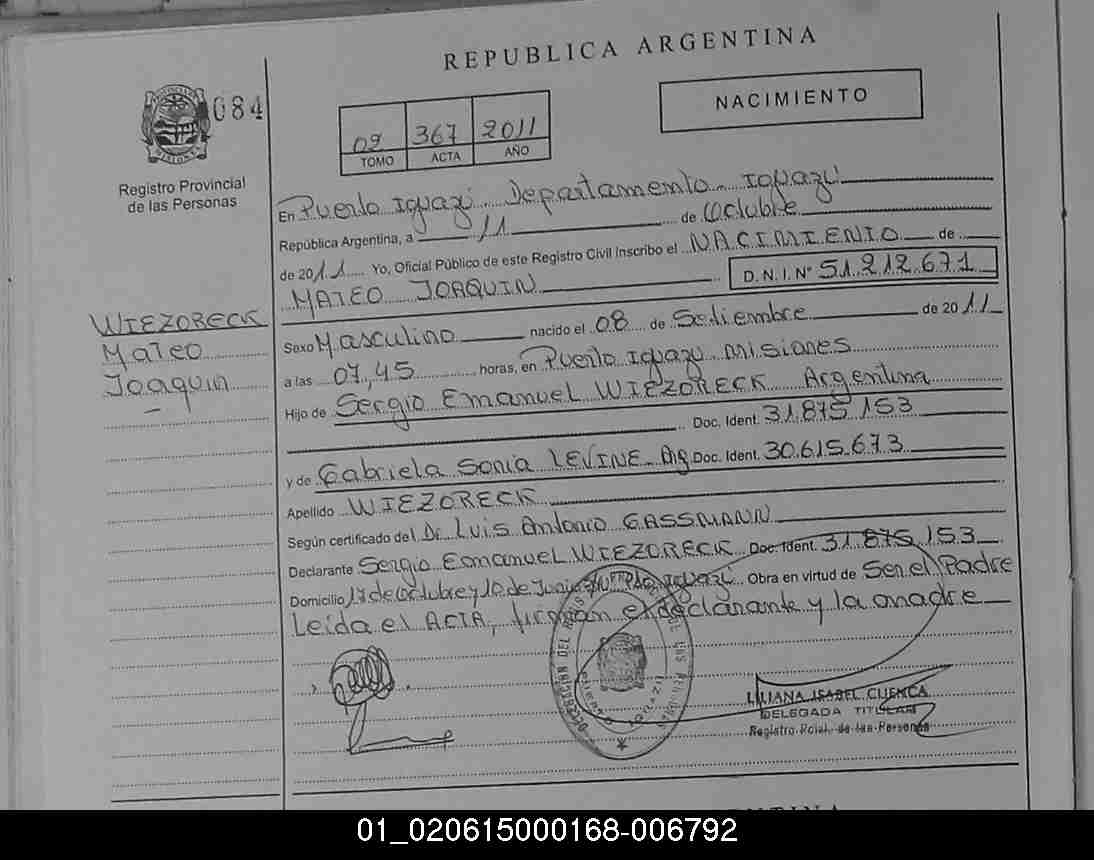 REPUBLICA ARGENTINA
084
02 367 2011
TOMO ACTA AÑO
NACIMIENTO
Registro Provincial
de las Personas
En Puerto Iguazú Departamento Iguazú
República Argentina, a 11 de Octubre
de 2011 Yo, Oficial Público de este Registro Civil Inscribo el NACIMIENTO de
MATEO JOAQUIN D.N.I. N° 51.212.671
WIEZORECK
Mateo
Joaquin
Sexo Masculino nacido el 08 de Setiembre de 2011
a las 07,45 horas, en Puerto Iguazú Misiones
Hijo de Sergio Emanuel WIEZORECK Argentina
Doc. Ident. 31.875.153
y de Gabriela Sonia LEVINE Arg Doc. Ident. 30.615.673
Apellido WIEZORECK
Según certificado del Dr Luis Antonio GASSMANN
Declarante Sergio Emanuel WIEZORECK Doc. Ident. 31.875.153
Domicilio 17 de Octubre y 10 de Junio Iguazú Obra en virtud de Ser el Padre
Leida el ACTA, firman el declarante y la madre
LILIANA ISABEL CUENCA
DELEGADA TITULAR
Registro Pcial. de las Personas
01_020615000168-006792